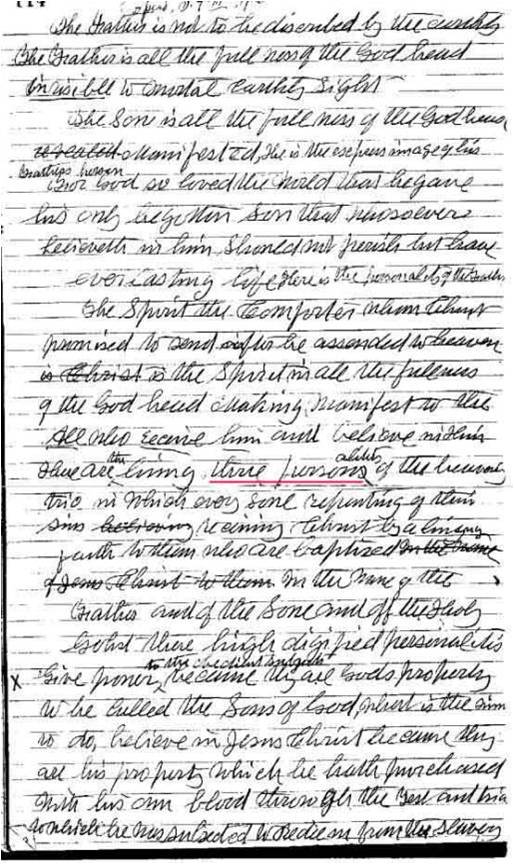 The Father is not to be discribed by the earthly
The Father is all the full ness of the God head
invisible to mortal earthly sight
The Sone is all the full ness of the Godhead
revealed Manifested, He is the express image of his
Fathers person
For God so loved the world that he gave
his only begotten Son that whosoever
believeth in him Should not perish but have
everlasting life Here is the personality of the Father
The Spirit the Comforter whom Christ
promised to send after he assended to heaven
is Christ is the Spirit in all the fullness
of the God head Making Manifest to the
All who receive him and believe in Him
There are the living three personsalities of the heavenly
trio in which every sone repenting of their
sins believing receiving Christ by a living
faith to them who are baptized in the name
of Jesus Christ to them In the Name of the
Father and of the Sone and off the Holy
Gohst these high digified personalitis
to the obedient subjects
Give power, because they are Gods property
to be called the Sons of God, what is the sinn
to do, believe in Jesus Christ because they
are his property which he hath purchased
with his own blood through the test and trial
to which he was subected to redeem from the slavery